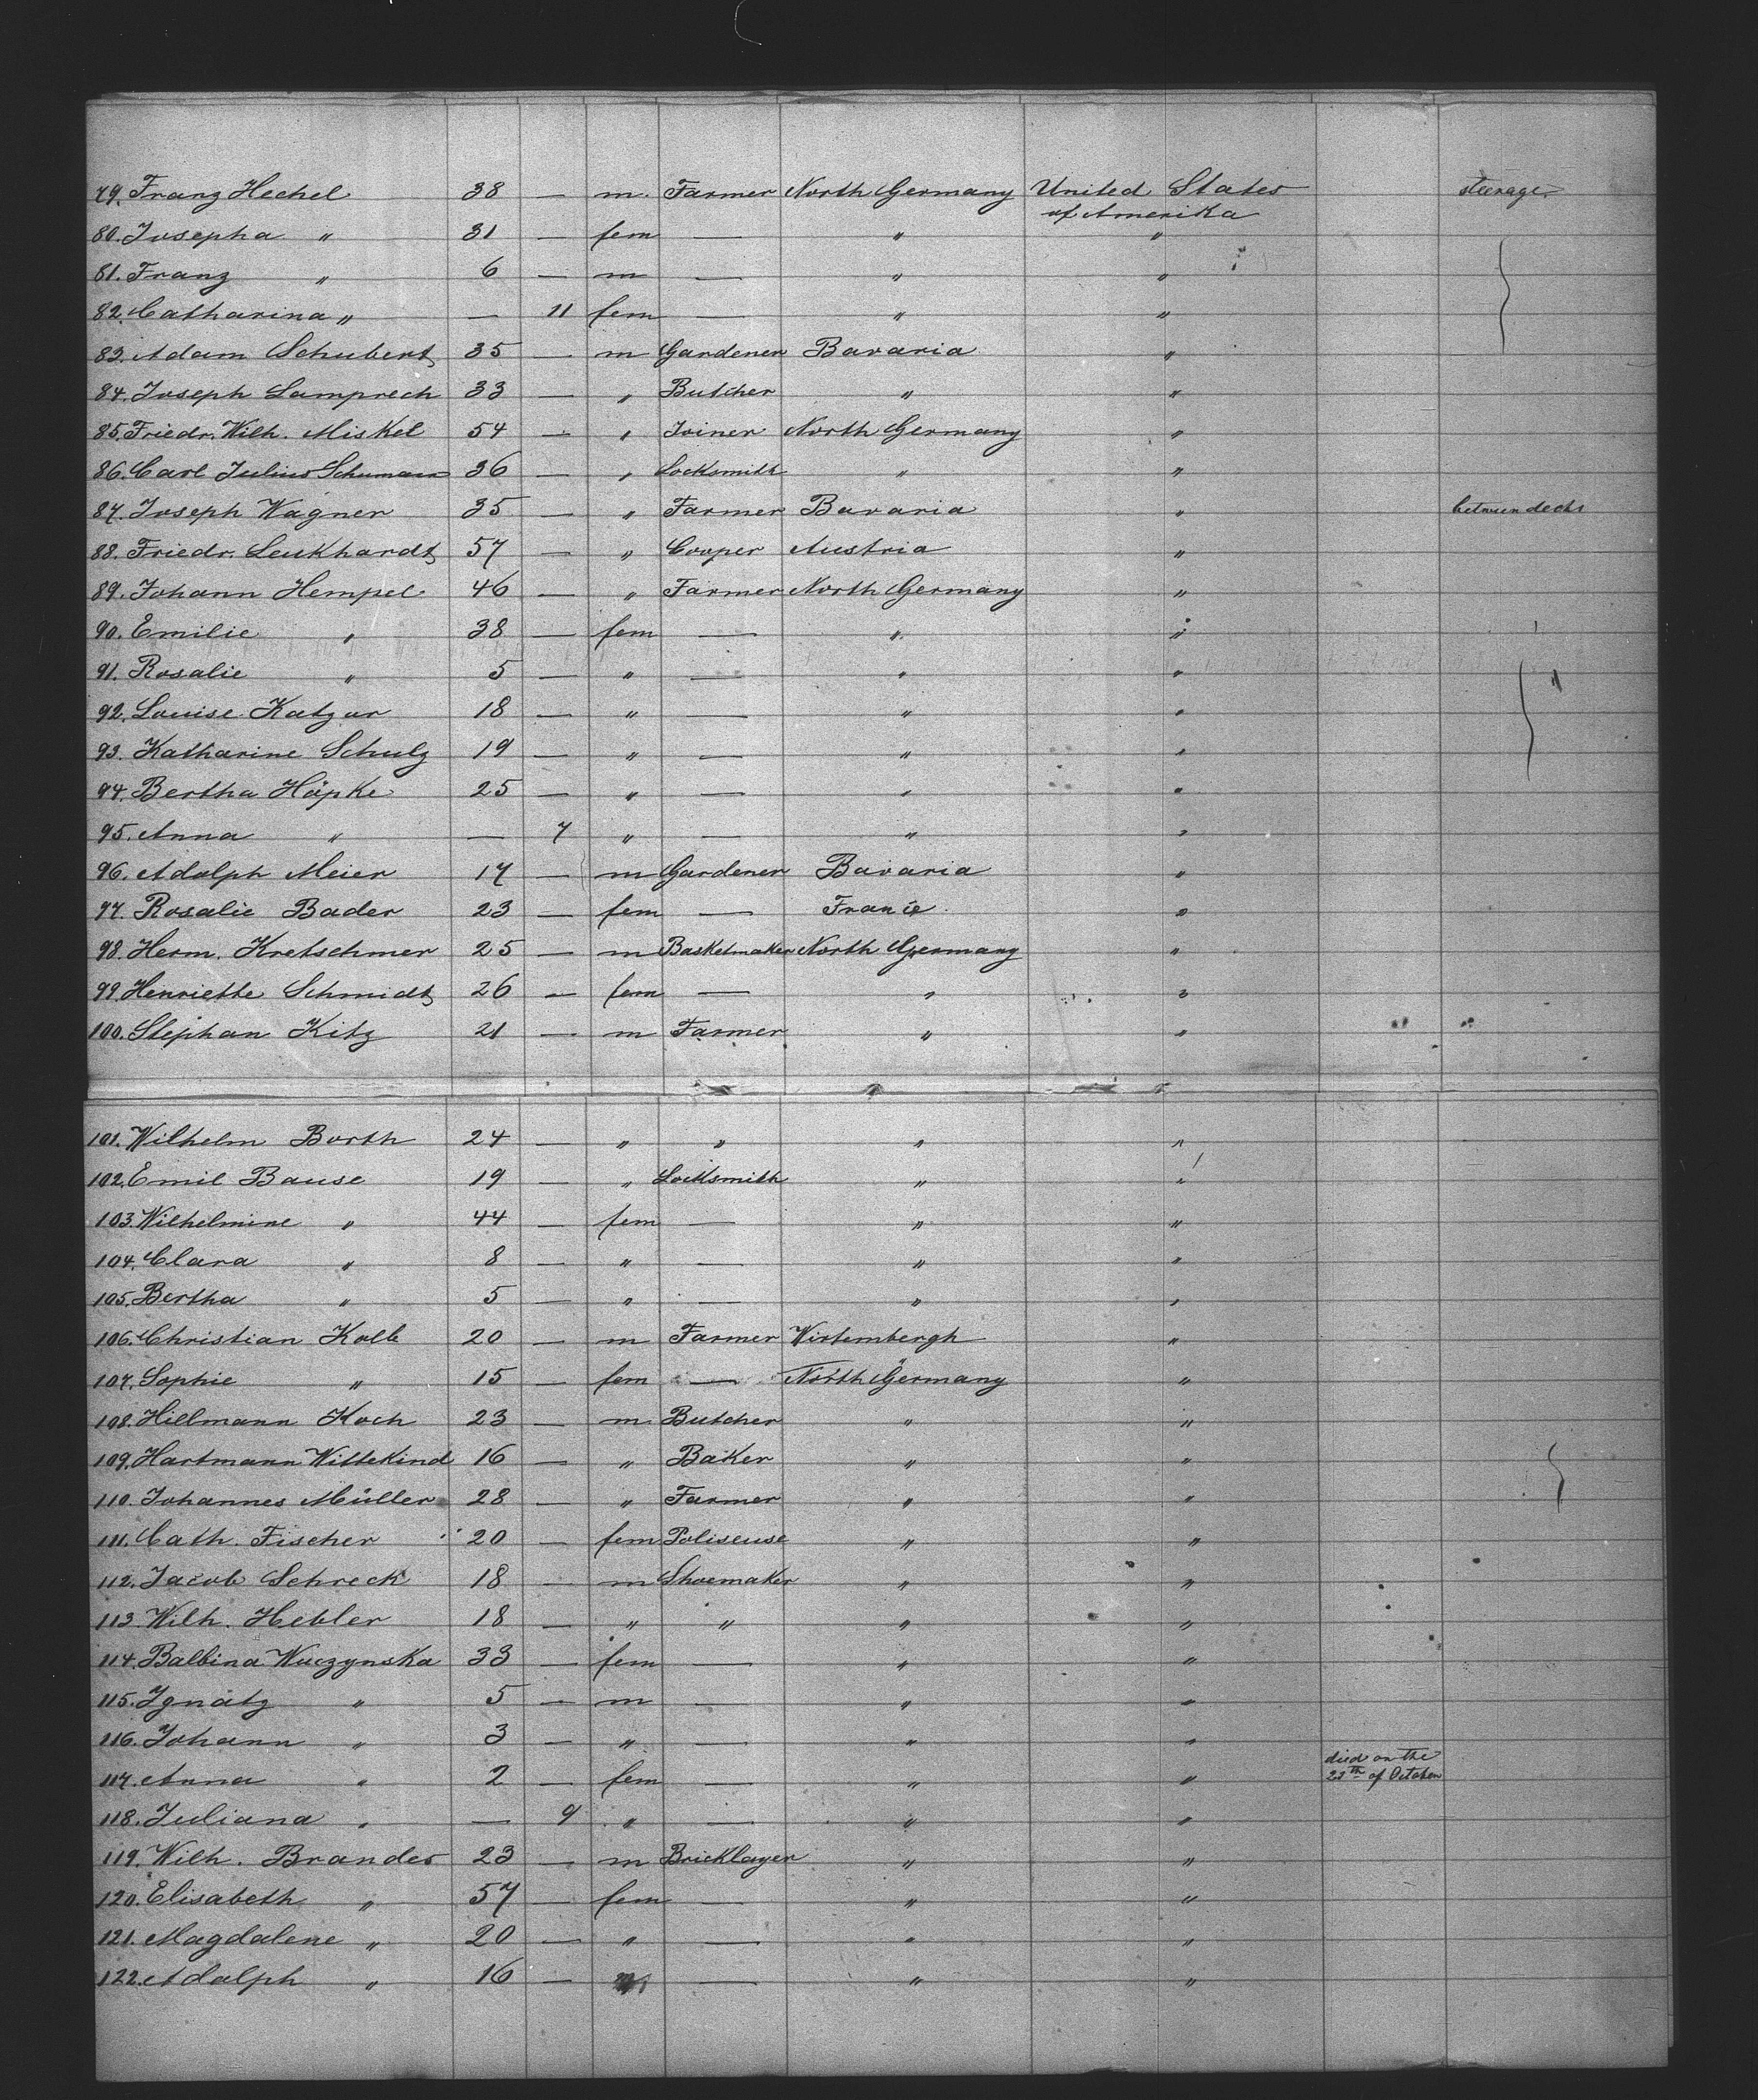 79. Franz Hechel 38 — m. Farmer North Germany United States steerage.
of Amerika
80. Josepha " 31 — fem — " "
81. Franz " 6 — m — " "
82. Catharina " — 11 fem — " "
83. Adam Schubert 35 — m Gardener Bavaria "
84. Joseph Lamprech 33 — " Butcher " "
85. Friedr. Wilh. Miskel 54 — " Joiner North Germany "
86. Carl Julius Schumann 36 — " Locksmith " "
87. Joseph Wagner 35 — " Farmer Bavaria " between decks
88. Friedr. Leukhardt 57 — " Cooper Austria "
89. Johann Hempel 46 — " Farmer North Germany "
90. Emilie " 38 — fem — " "
91. Rosalie " 5 — " — " " "
92. Louise Katzur 18 — " — " "
93. Katharine Schulz 19 — " — " "
94. Bertha Höpke 25 — " — " "
95. Anna " — 7 " — " "
96. Adolph Meier 17 — m Gardener Bavaria "
97. Rosalie Bader 23 — fem — France "
98. Herm. Kretschmer 25 — m Basketmaker North Germany "
99. Henriette Schmidt 26 — fem — " "
100. Stephan Kitz 21 — m Farmer " "
101. Wilhelm Borth 24 — " " " "
102. Emil Bause 19 — " Locksmith " "
103. Wilhelmine " 44 — fem — " "
104. Clara " 8 — " — " "
105. Bertha " 5 — " — " "
106. Christian Kolb 20 — m Farmer Wirtembergh "
107. Sophie " 15 — fem — North Germany "
108. Hillmann Koch 23 — m Butcher " "
109. Hartmann Wittekind 16 — " Baker " "
110. Johannes Müller 28 — " Farmer " "
111. Cath. Fischer 20 — fem Poliseuse " "
112. Jacob Schreck 18 — m Shoemaker " "
113. Wilh. Hebler 18 — " " " "
114. Balbina Wuczynska 33 — fem — " "
115. Ignatz " 5 — m — " "
116. Johann " 3 — " — " "
died on the
117. Anna " 2 — fem — " " 22th of October
118. Juliana " — 9 " — " "
119. Wilh. Brandes 23 — m Bricklayer " "
120. Elisabeth " 57 — fem — " "
121. Magdalene " 20 — " — " "
122. Adolph " 16 — m — " "